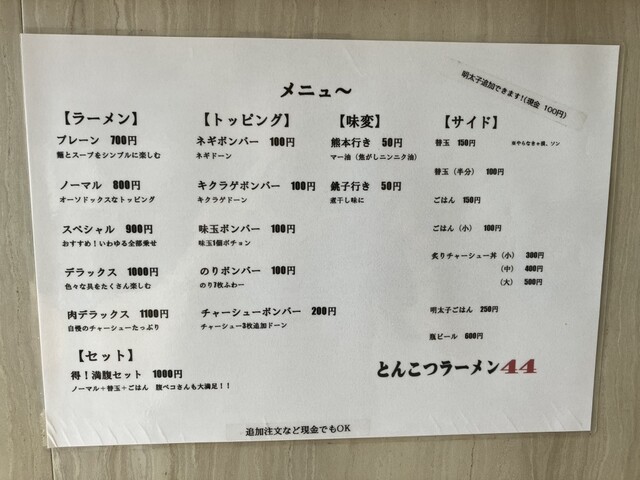 メニュ～
明太子追加できます!(現金 100円)
【ラーメン】
プレーン 700円
麺とスープをシンプルに楽しむ
ノーマル 800円
オーソドックスなトッピング
スペシャル 900円
おすすめ!いわゆる全部乗せ
デラックス 1000円
色々な具をたくさん楽しむ
肉デラックス 1100円
自慢のチャーシューたっぷり
【セット】
得!満腹セット 1000円
ノーマル+替玉+ごはん 腹ペコさんも大満足!!
【トッピング】
ネギボンバー 100円
ネギドーン
キクラゲボンバー 100円
キクラゲドーン
味玉ボンバー 100円
味玉1個ポチョン
のりボンバー 100円
のり7枚ふわー
チャーシューボンバー 200円
チャーシュー3枚追加ドーン
【味変】
熊本行き 50円
マー油(焦がしニンニク油)
銚子行き 50円
煮干し味に
【サイド】
替玉 150円 ※やらなきゃ損、ソン
替玉(半分) 100円
ごはん 150円
ごはん(小) 100円
炙りチャーシュー丼(小) 300円
(中) 400円
(大) 500円
明太子ごはん 250円
瓶ビール 600円
とんこつラーメン44
追加注文など現金でもOK